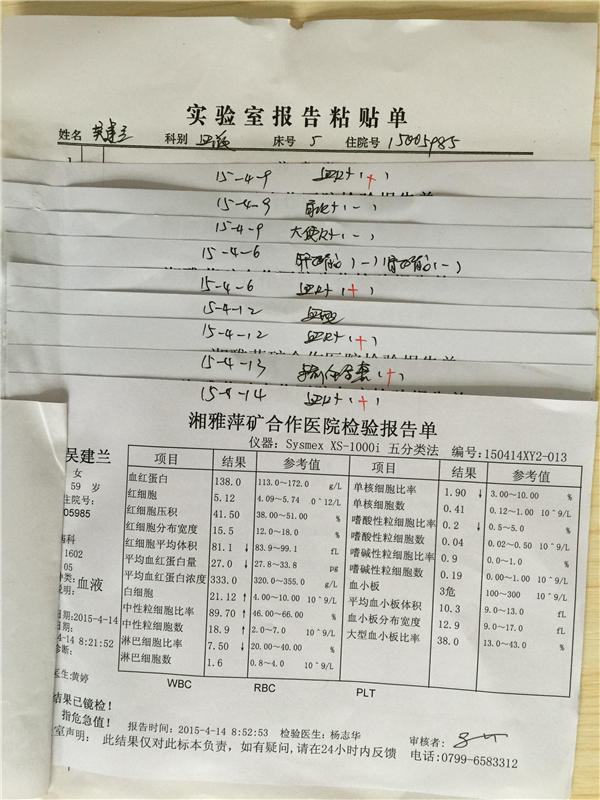 实验室报告粘贴单
姓名 吴建兰 科别 血液 床号 5 住院号 15005985
15-4-9 血尺十(+)
15-4-9 (-)
15-4-9 大便 (-)
15-4-6 (-) (-)
15-4-6 (+)
15-4-12
15-4-12 (+)
15-4-13 (+)
15-4-14 (+)
湘雅萍矿合作医院检验报告单
仪器: Sysmex XS-1000i 五分类法 编号:150414XY2-013
吴建兰
女
59 岁
住院号:
05985
1602
05
血液
日期:2015-4-14
4-14 8:21:52
医生:黄婷
项目 结果 参考值 项目 结果 参考值
血红蛋白 138.0 113.0~172.0 g/L 单核细胞比率 1.90 ↓ 3.00~10.00 %
红细胞 5.12 4.09~5.74 0^12/L 单核细胞数 0.41 0.12~1.00 10^9/L
红细胞压积 41.50 38.00~51.00 % 嗜酸性粒细胞比率 0.2 ↓ 0.5~5.0 %
红细胞分布宽度 15.5 12.0~18.0 % 嗜酸性粒细胞数 0.04 0.02~0.50 10^9/L
红细胞平均体积 81.1 ↓ 83.9~99.1 fL 嗜碱性粒细胞比率 0.9 0.0~1.0 %
平均血红蛋白量 27.0 ↓ 27.8~33.8 pg 嗜碱性粒细胞数 0.19 0.00~1.00 10^9/L
平均血红蛋白浓度 333.0 320.0~355.0 g/L 血小板 3危 100~300 10^9/L
白细胞 21.12 ↑ 4.00~10.00 10^9/L 平均血小板体积 10.3 9.0~13.0 fL
中性粒细胞比率 89.70 ↑ 46.00~66.00 % 血小板分布宽度 12.9 9.0~17.0 fL
中性粒细胞数 18.9 ↑ 2.0~7.0 10^9/L 大型血小板比率 38.0 13.0~43.0 %
淋巴细胞比率 7.50 ↓ 20.00~40.00 %
淋巴细胞数 1.6 0.8~4.0 10^9/L
WBC RBC PLT
结果已镜检!
指危急值!
报告时间: 2015-4-14 8:52:53 检验医生: 杨志华 审核者:
室声明: 此结果仅对此标本负责,如有疑问,请在24小时内反馈 电话:0799-6583312